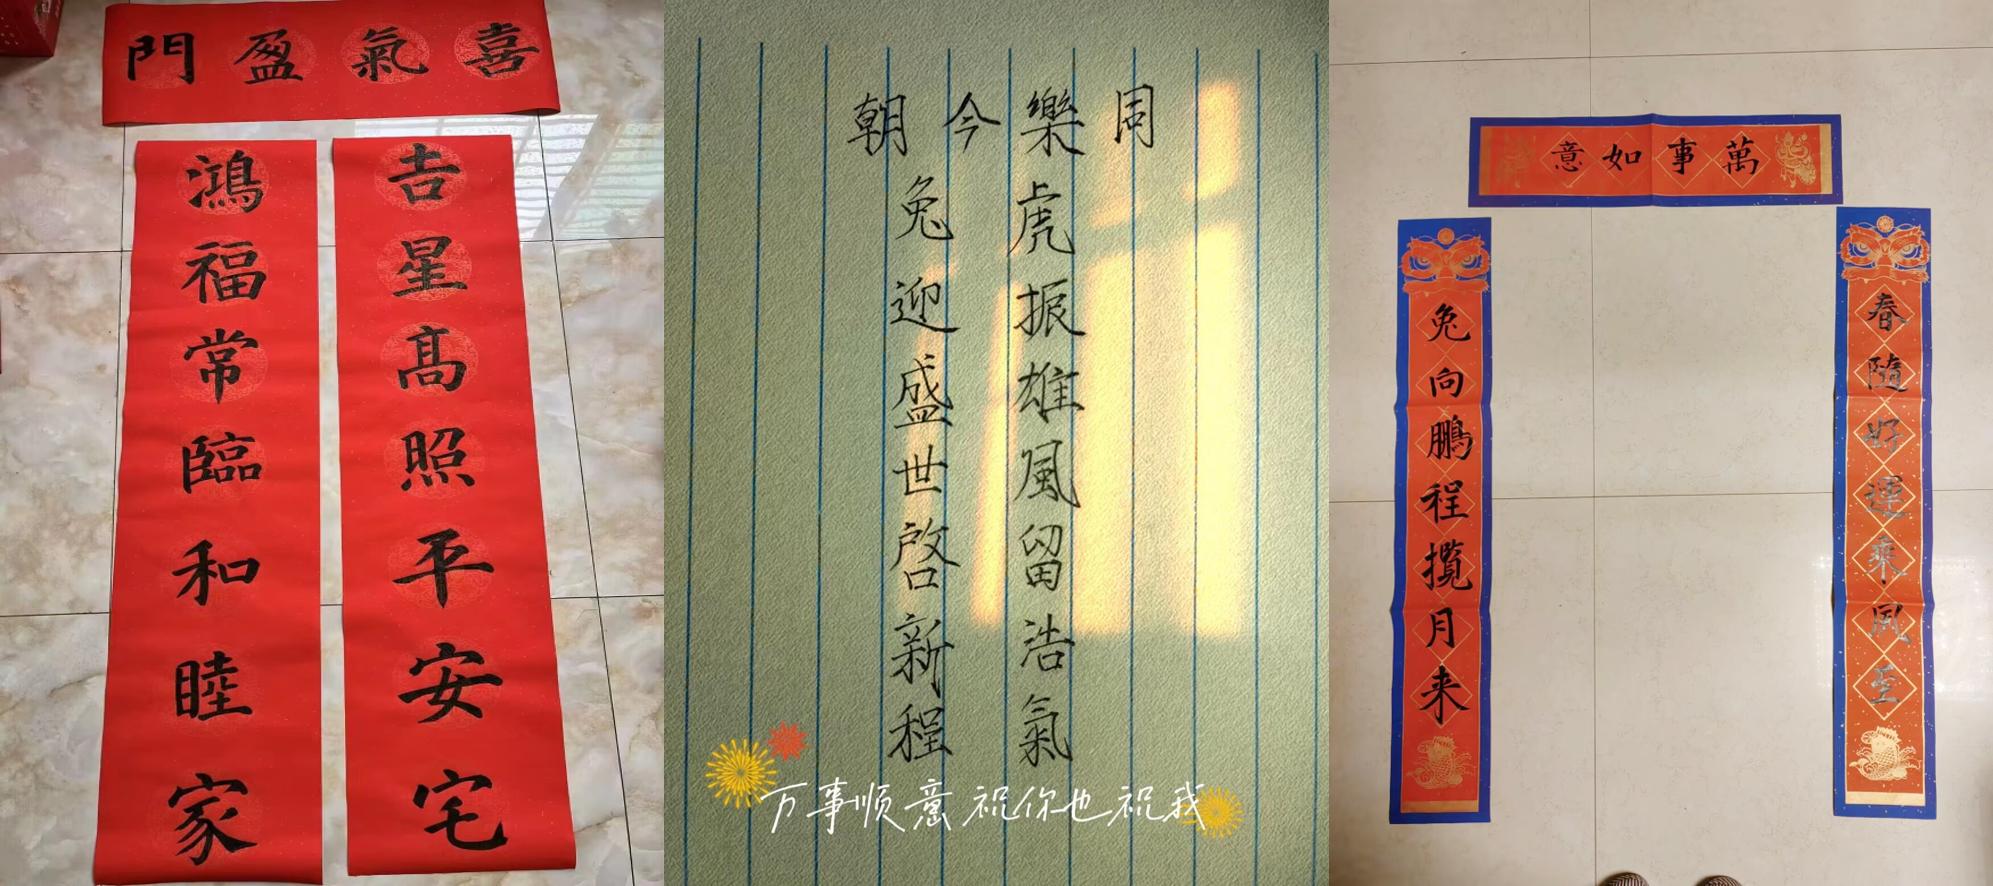 喜氣盈門
吉星髙照平安宅
鴻福常臨和睦家
同樂今朝
虎振雄風留浩氣
兔迎盛世啓新程
万事顺意祝你也祝我
萬事如意
春隨好運乘風至
兔向鵬程攬月来